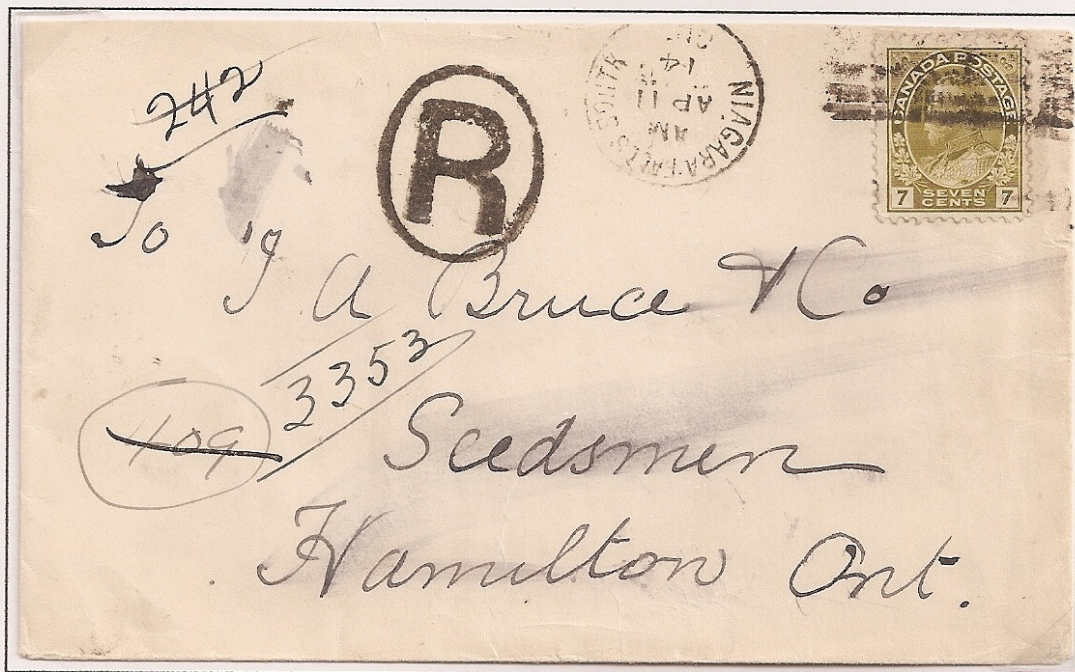 242
R
NIAGARA FALLS SOUTH
AM
AP 11
14
CANADA POSTAGE
7 SEVEN CENTS 7
To
J A Bruce & Co
3353
409
Seedsmen
Hamilton Ont.